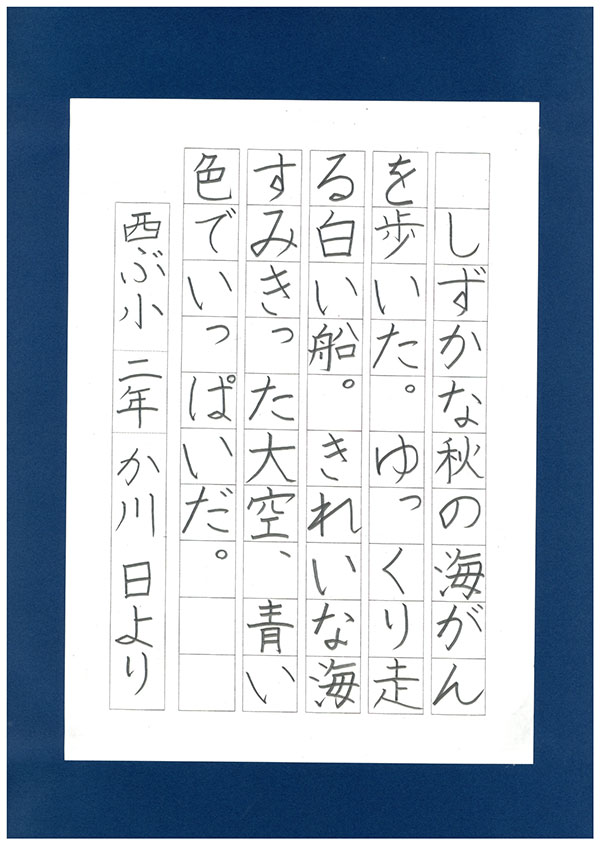 しずかな秋の海がん
を歩いた。ゆっくり走
る白い船。きれいな海
すみきった大空、青い
色でいっぱいだ。
西ぶ小 二年 か川 日より